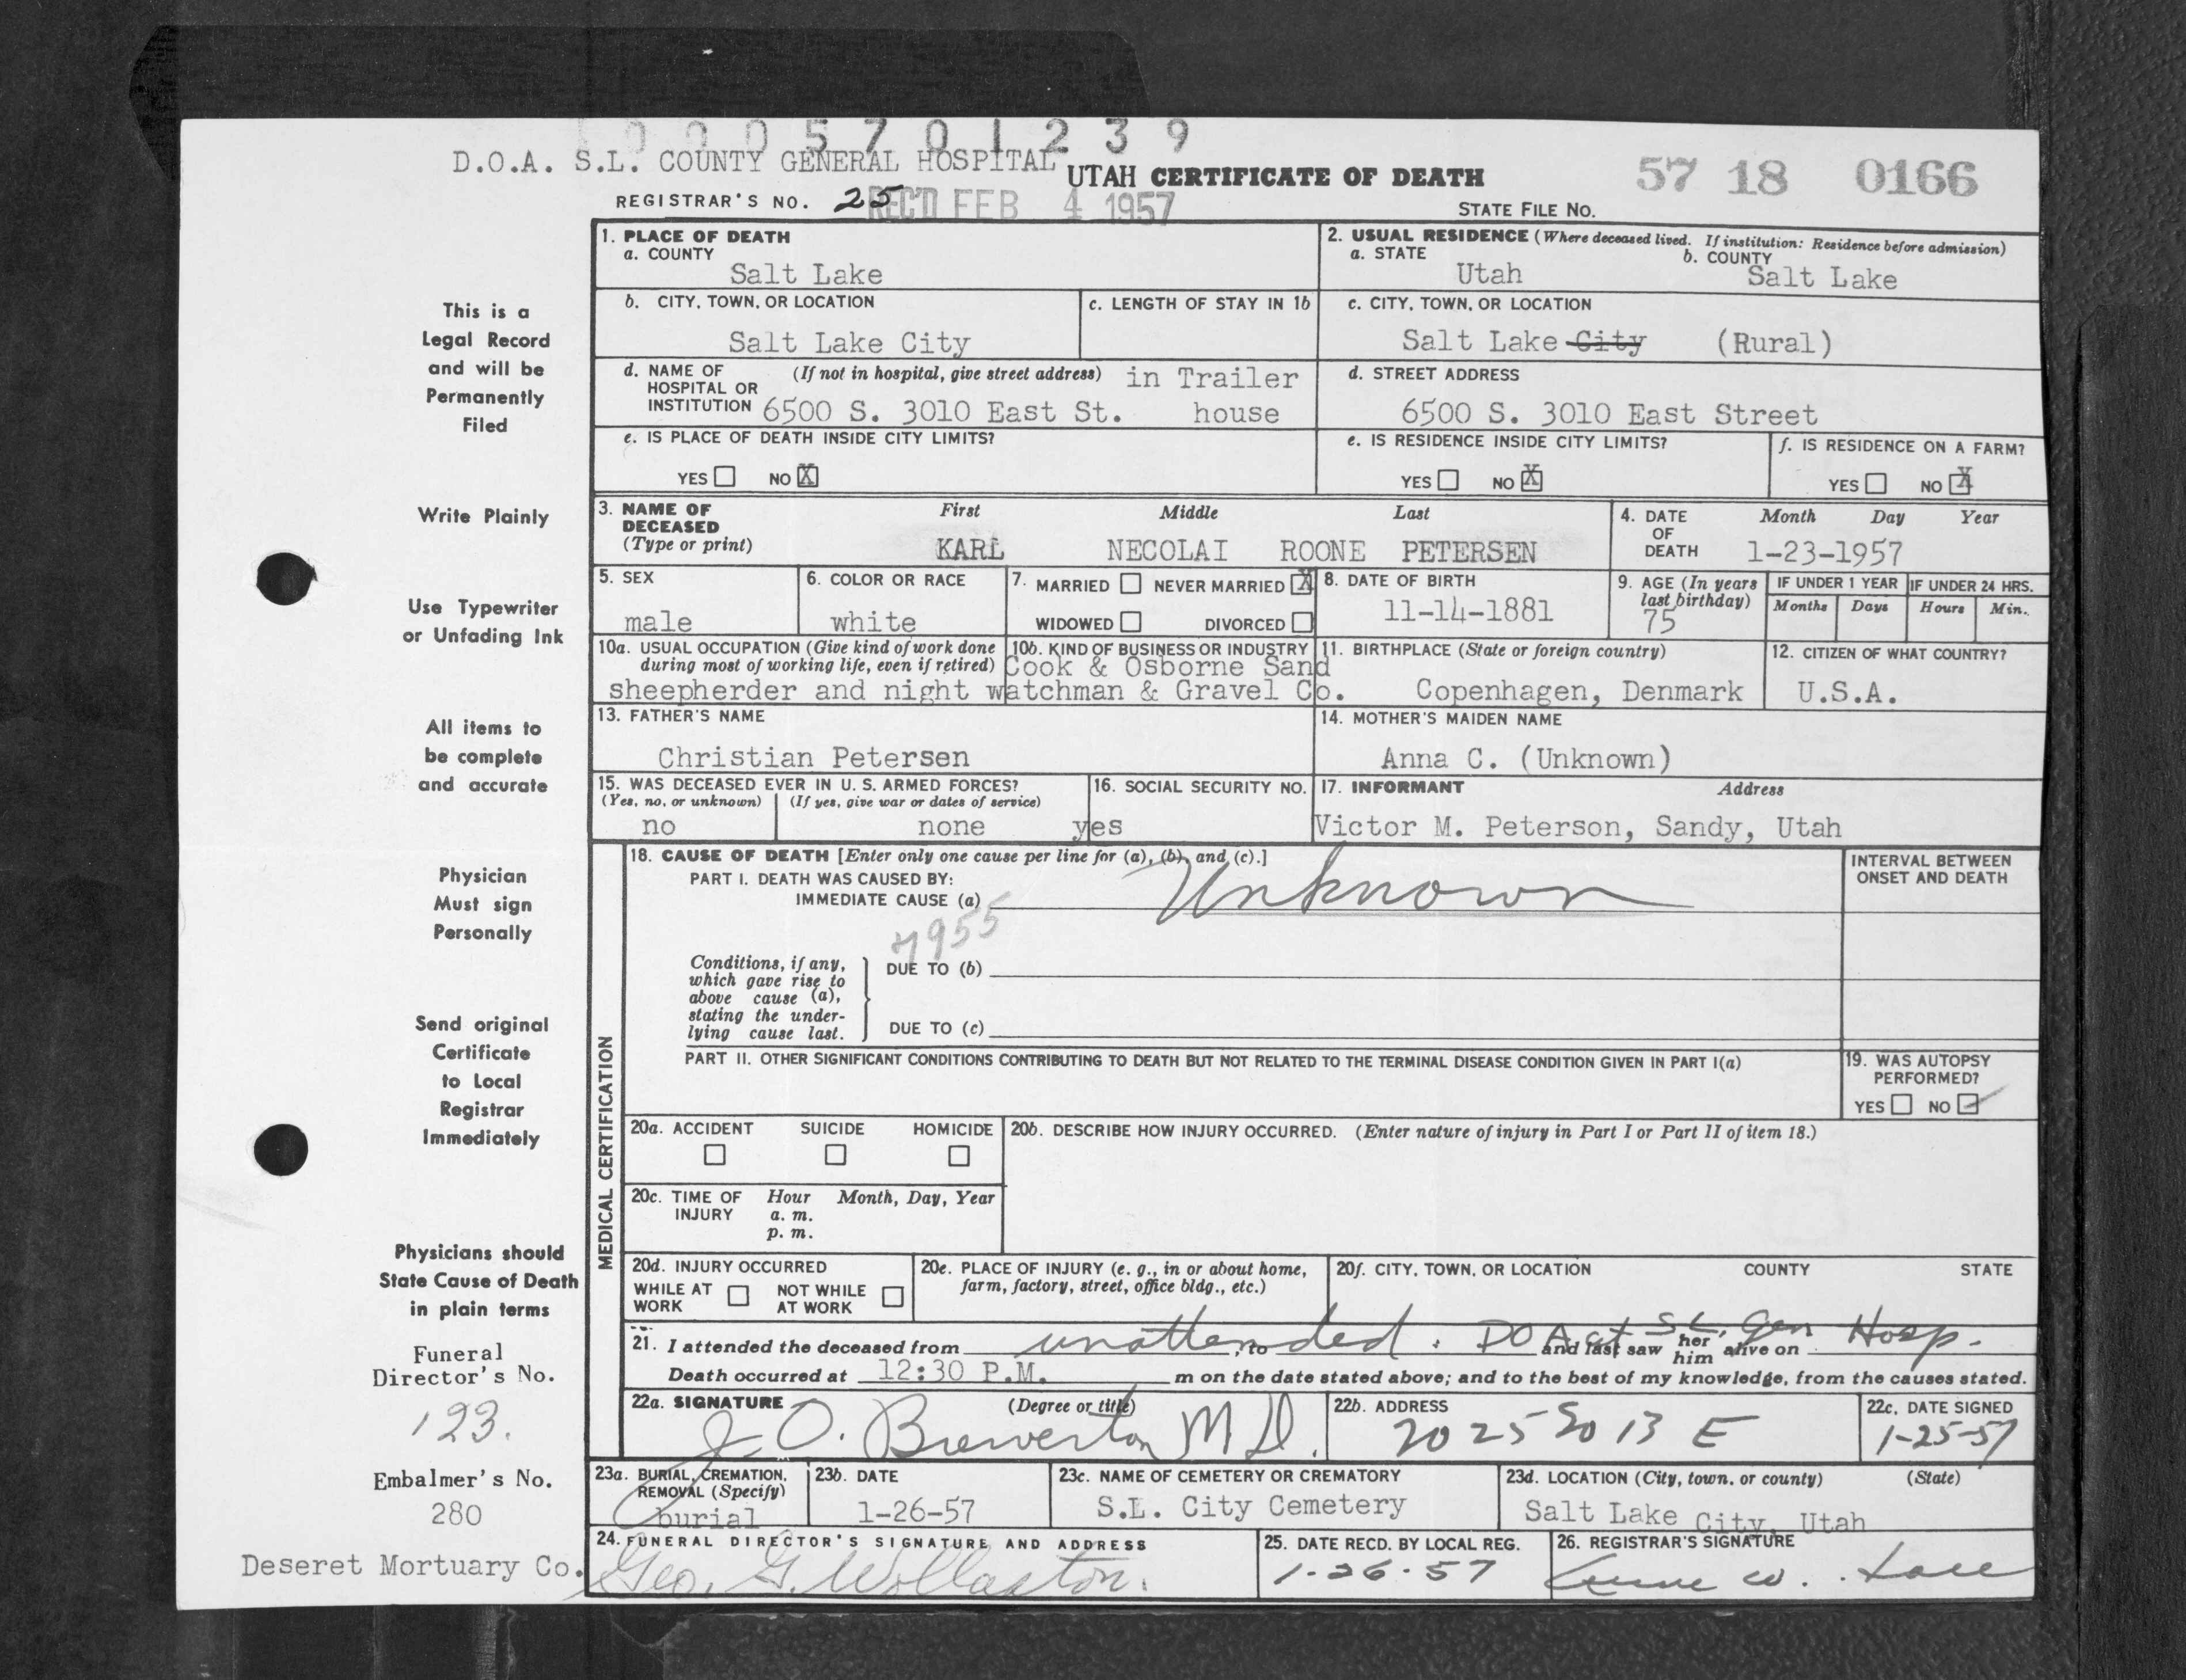 0005701239
D.O.A. S.L. COUNTY GENERAL HOSPITAL
UTAH CERTIFICATE OF DEATH
57 18 0166
REGISTRAR'S NO. 25
REC'D FEB 4 1957
STATE FILE NO.
This is a
Legal Record
and will be
Permanently
Filed
Write Plainly
Use Typewriter
or Unfading Ink
All items to
be complete
and accurate
Physician
Must sign
Personally
Send original
Certificate
to Local
Registrar
Immediately
Physicians should
State Cause of Death
in plain terms
Funeral
Director's No.
123.
Embalmer's No.
280
Deseret Mortuary Co.
1. PLACE OF DEATH
a. COUNTY
Salt Lake
2. USUAL RESIDENCE (Where deceased lived. If institution: Residence before admission)
a. STATE
Utah
b. COUNTY
Salt Lake
b. CITY, TOWN, OR LOCATION
Salt Lake City
c. LENGTH OF STAY IN 1b
c. CITY, TOWN, OR LOCATION
Salt Lake City (Rural)
d. NAME OF HOSPITAL OR INSTITUTION
(If not in hospital, give street address) in Trailer
6500 S. 3010 East St. house
d. STREET ADDRESS
6500 S. 3010 East Street
e. IS PLACE OF DEATH INSIDE CITY LIMITS?
YES NO X
e. IS RESIDENCE INSIDE CITY LIMITS?
YES NO X
f. IS RESIDENCE ON A FARM?
YES NO X
3. NAME OF
DECEASED
(Type or print)
First Middle Last
KARL NECOLAI ROONE PETERSEN
4. DATE
OF
DEATH
Month Day Year
1-23-1957
5. SEX
male
6. COLOR OR RACE
white
7. MARRIED NEVER MARRIED X
WIDOWED DIVORCED
8. DATE OF BIRTH
11-14-1881
9. AGE (In years
last birthday)
75
IF UNDER 1 YEAR
Months Days
IF UNDER 24 HRS.
Hours Min.
10a. USUAL OCCUPATION (Give kind of work done
during most of working life, even if retired)
sheepherder and night watchman
10b. KIND OF BUSINESS OR INDUSTRY
Cook & Osborne Sand
& Gravel Co.
11. BIRTHPLACE (State or foreign country)
Copenhagen, Denmark
12. CITIZEN OF WHAT COUNTRY?
U.S.A.
13. FATHER'S NAME
Christian Petersen
14. MOTHER'S MAIDEN NAME
Anna C. (Unknown)
15. WAS DECEASED EVER IN U. S. ARMED FORCES?
(Yes, no, or unknown) (If yes, give war or dates of service)
no none
16. SOCIAL SECURITY NO.
yes
17. INFORMANT Address
Victor M. Peterson, Sandy, Utah
MEDICAL CERTIFICATION
18. CAUSE OF DEATH [Enter only one cause per line for (a), (b), and (c).]
PART I. DEATH WAS CAUSED BY:
IMMEDIATE CAUSE (a) Unknown
7955
INTERVAL BETWEEN
ONSET AND DEATH
Conditions, if any,
which gave rise to
above cause (a),
stating the under-
lying cause last.
DUE TO (b)
DUE TO (c)
PART II. OTHER SIGNIFICANT CONDITIONS CONTRIBUTING TO DEATH BUT NOT RELATED TO THE TERMINAL DISEASE CONDITION GIVEN IN PART I(a)
19. WAS AUTOPSY
PERFORMED?
YES NO
20a. ACCIDENT SUICIDE HOMICIDE
20b. DESCRIBE HOW INJURY OCCURRED. (Enter nature of injury in Part I or Part II of item 18.)
20c. TIME OF
INJURY
Hour Month, Day, Year
a. m.
p. m.
20d. INJURY OCCURRED
WHILE AT
WORK
NOT WHILE
AT WORK
20e. PLACE OF INJURY (e. g., in or about home,
farm, factory, street, office bldg., etc.)
20f. CITY, TOWN, OR LOCATION COUNTY STATE
21. I attended the deceased from , to and last saw her him alive on
unattended. DOA at S L. Gen Hosp.
Death occurred at 12:30 P.M. m on the date stated above; and to the best of my knowledge, from the causes stated.
22a. SIGNATURE (Degree or title)
J. O. Brewerton MD.
22b. ADDRESS
2025 So 13 E
22c. DATE SIGNED
1-25-57
23a. BURIAL, CREMATION,
REMOVAL (Specify)
burial
23b. DATE
1-26-57
23c. NAME OF CEMETERY OR CREMATORY
S.L. City Cemetery
23d. LOCATION (City, town, or county) (State)
Salt Lake City, Utah
24. FUNERAL DIRECTOR'S SIGNATURE AND ADDRESS
Geo. G. Wollaston.
25. DATE RECD. BY LOCAL REG.
1-26-57
26. REGISTRAR'S SIGNATURE